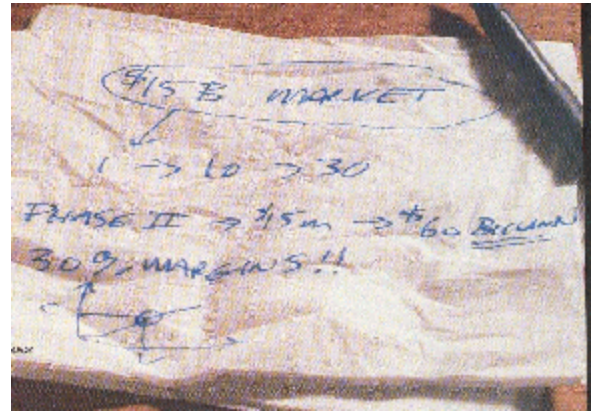 $15 B MARKET
1 → 10 → 30
PHASE II → $15m → $60 BILLION
30% MARGINS!!